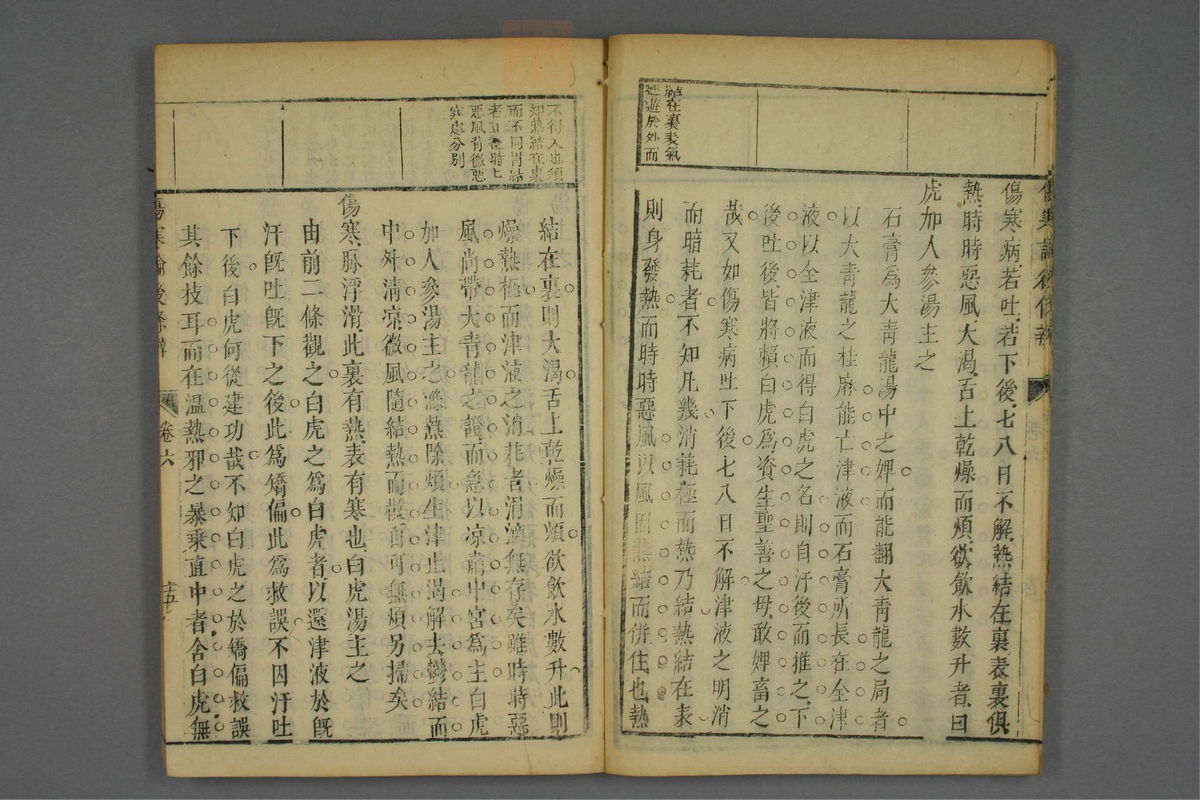 傷寒論後條辨
結在裏表氣
遊於外而
傷寒病若吐若下後七八日不解熱結在裏表裏俱
熱時時惡風大渴舌上乾燥而煩欲飲水數升者白
虎加人參湯主之
石膏爲大靑龍湯中之婢而能翻大靑龍之局者
以大靑龍之桂麻能亡津液而石膏所長在全津
液以全津液而得白虎之名則自汗後而推之下
後吐後皆將賴白虎爲資生聖善之母敢婢畜之
哉又如傷寒病吐下後七八日不解津液之明消
而暗耗者不知凡幾消耗極而熱乃結熱結在表
則身發熱而時時惡風以風因熱結而倂住也熱
不得入也須
知熱結在裏
而不同胃結
者正從時上
惡風背微惡
寒處分別
結在裏則大渴舌上乾燥而煩欲飲水數升此則
燥熱極而津液之消耗者涓滴無存矣雖時時惡
風尚帶大靑龍之證而急以凉肅中宮爲主白虎
加人參湯主之滌熱除煩生津止渴解去鬱結而
中外淸凉微風隨結熱而散自可無煩另掃矣
傷寒脉浮滑此裏有熱表有寒也白虎湯主之
由前二條觀之白虎之爲白虎者以還津液於旣
汗旣吐旣下之後此爲矯偏此爲救誤不因汗吐
下後白虎何從建功哉不知白虎之於矯偏救誤
其餘技耳而在溫熱邪之暴乘直中者舍白虎無
傷寒論後條辨
卷六
十五